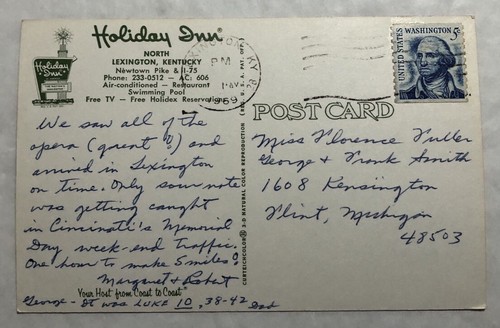 Holiday Inn®
NORTH
LEXINGTON, KENTUCKY
Newtown Pike & I-75
Phone: 233-0512 — AC: 606
Air-conditioned — Restaurant
Swimming Pool
Free TV — Free Holidex Reservations
Holiday Inn
We saw all of the
opera (great!) and
arrived in Lexington
on time. Only sour note
was getting caught
in Cincinnati's Memorial
Day week-end traffic.
One hour to make 5 miles!
Margaret & Robert
Your Host from Coast to Coast
George - It was LUKE 10, 38-42 Dad
CURTEICHCOLOR® 3-D NATURAL COLOR REPRODUCTION (REG. U.S.A. PAT. OFF.)
PM
1969
UNITED STATES
WASHINGTON 5c
POST CARD
Miss Florence Fuller
George & Frank Smith
1608 Kensington
Flint, Michigan
48503